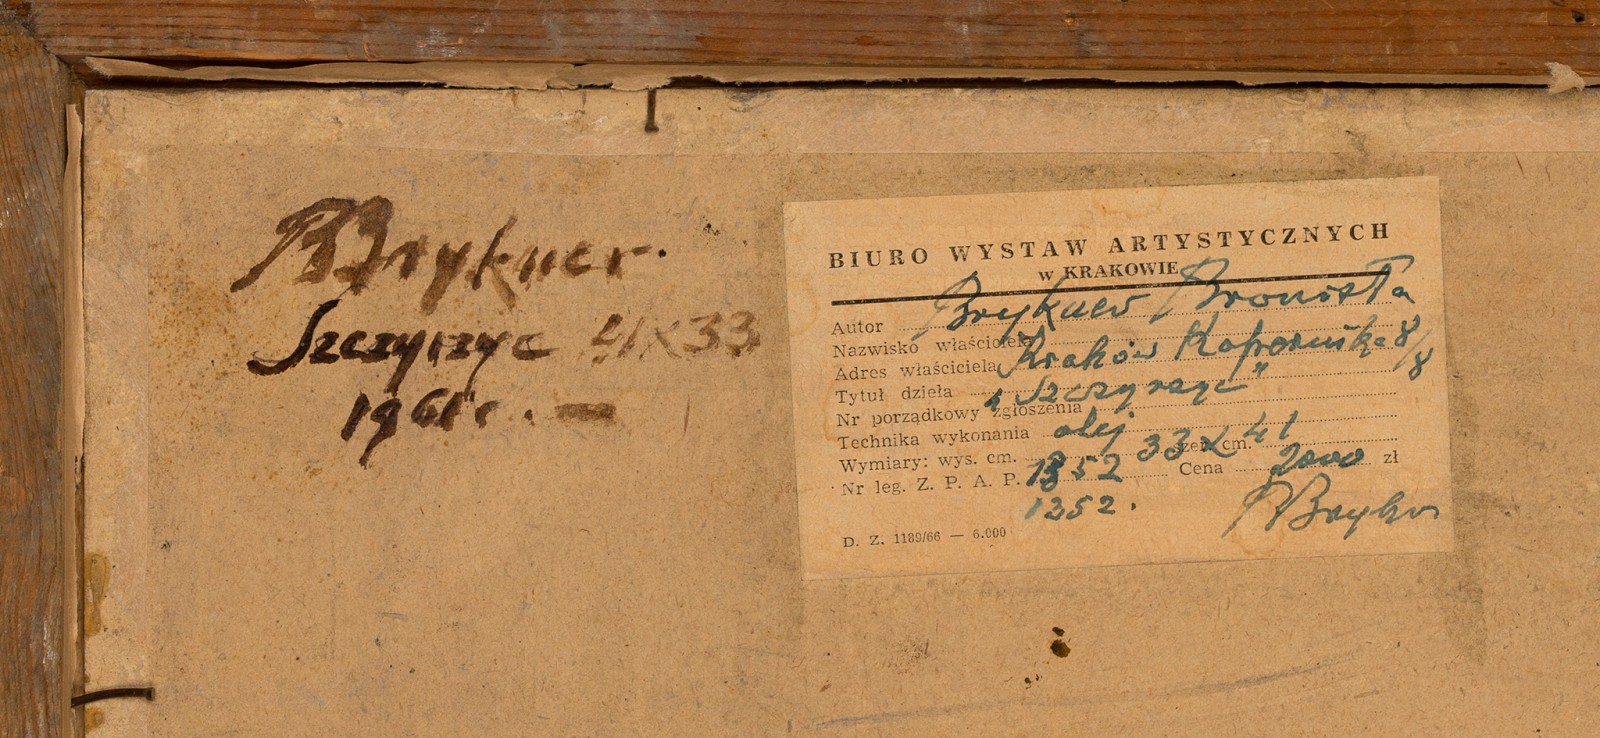 BBrykner.
Szczyrzyc 41x33
1961r. —
BIURO WYSTAW ARTYSTYCZNYCH
w KRAKOWIE
Autor Brykner Bronisła
Nazwisko właściciela
Adres właściciela Kraków Kopernika 8/8
Tytuł dzieła „Szczyrzyc"
Nr porządkowy zgłoszenia
Technika wykonania olej
Wymiary: wys. cm. 33 x szer. cm. 41
Nr leg. Z. P. A. P. 1352 Cena 2000 zł
1352. BBrykn
D. Z. 1189/66 — 6.000